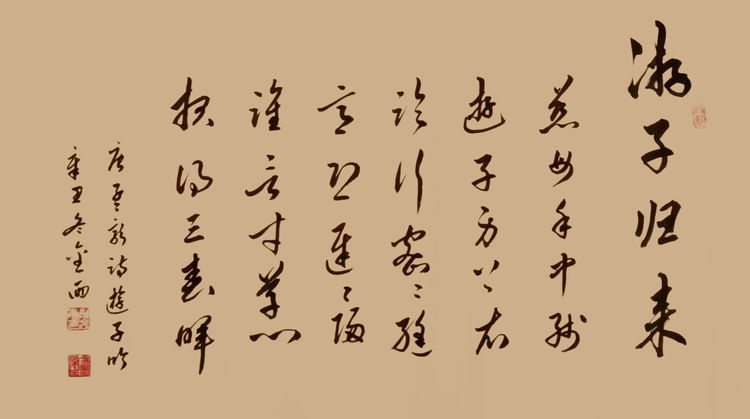 游子归来
慈母手中线
遊子身上衣
临行密密缝
意恐迟迟归
谁言寸草心
报得三春晖
唐孟郊诗遊子吟
辛丑冬